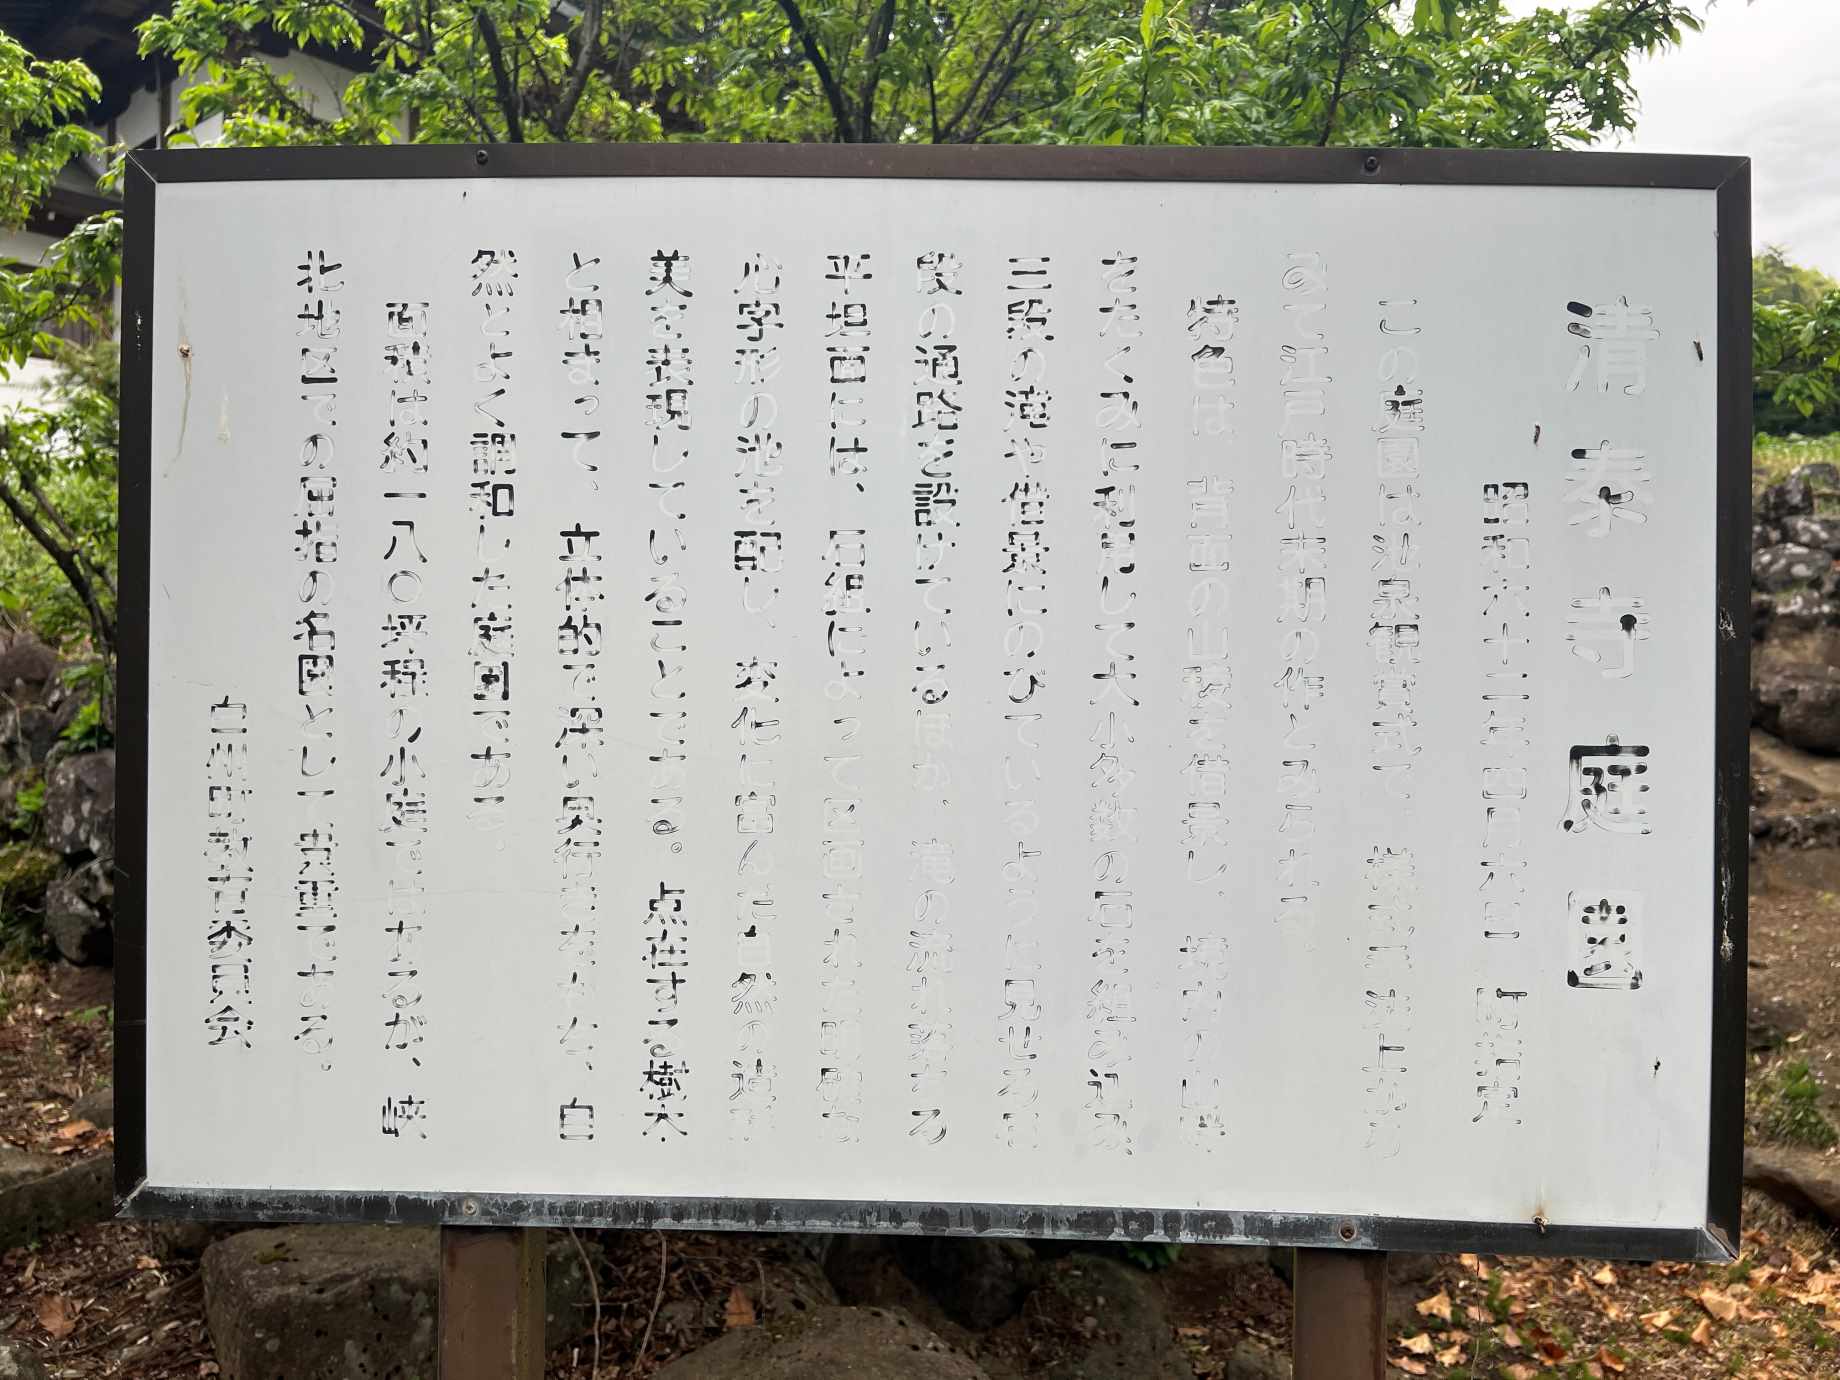 清泰寺庭園
昭和六十二年四月六日 町指定
この庭園は池泉観賞式で、様式手法上から
みて江戸時代末期の作とみられる。
特色は、背面の山稜を借景し、境内の山畔
をたくみに利用して大小多数の石を組み込み、
三段の滝や借景にのびているように見せる
段の通路を設けているほか、滝の流れ落ちる
平坦面には、石組によって区画された
心字形の池を配し、変化に富んだ自然の造形
美を表現していることである。点在する樹木
と相まって、立体的で深い奥行きをもたせ、自
然とよく調和した庭園である。
面積は約一八〇坪程の小庭ではあるが、峡
北地区での屈指の名園として貴重である。
白州町教育委員会